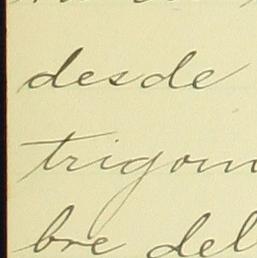 desde
trigon
bre del